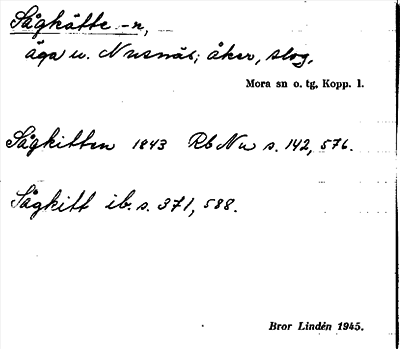 Sågkätte -n,
äga u. Nusnäs; åker, slog.
Mora sn o. tg, Kopp. l.
Sågkitten 1843 Rb Nu s. 142, 576.
Sågkitt ib. s. 371, 588.
Bror Lindén 1945.